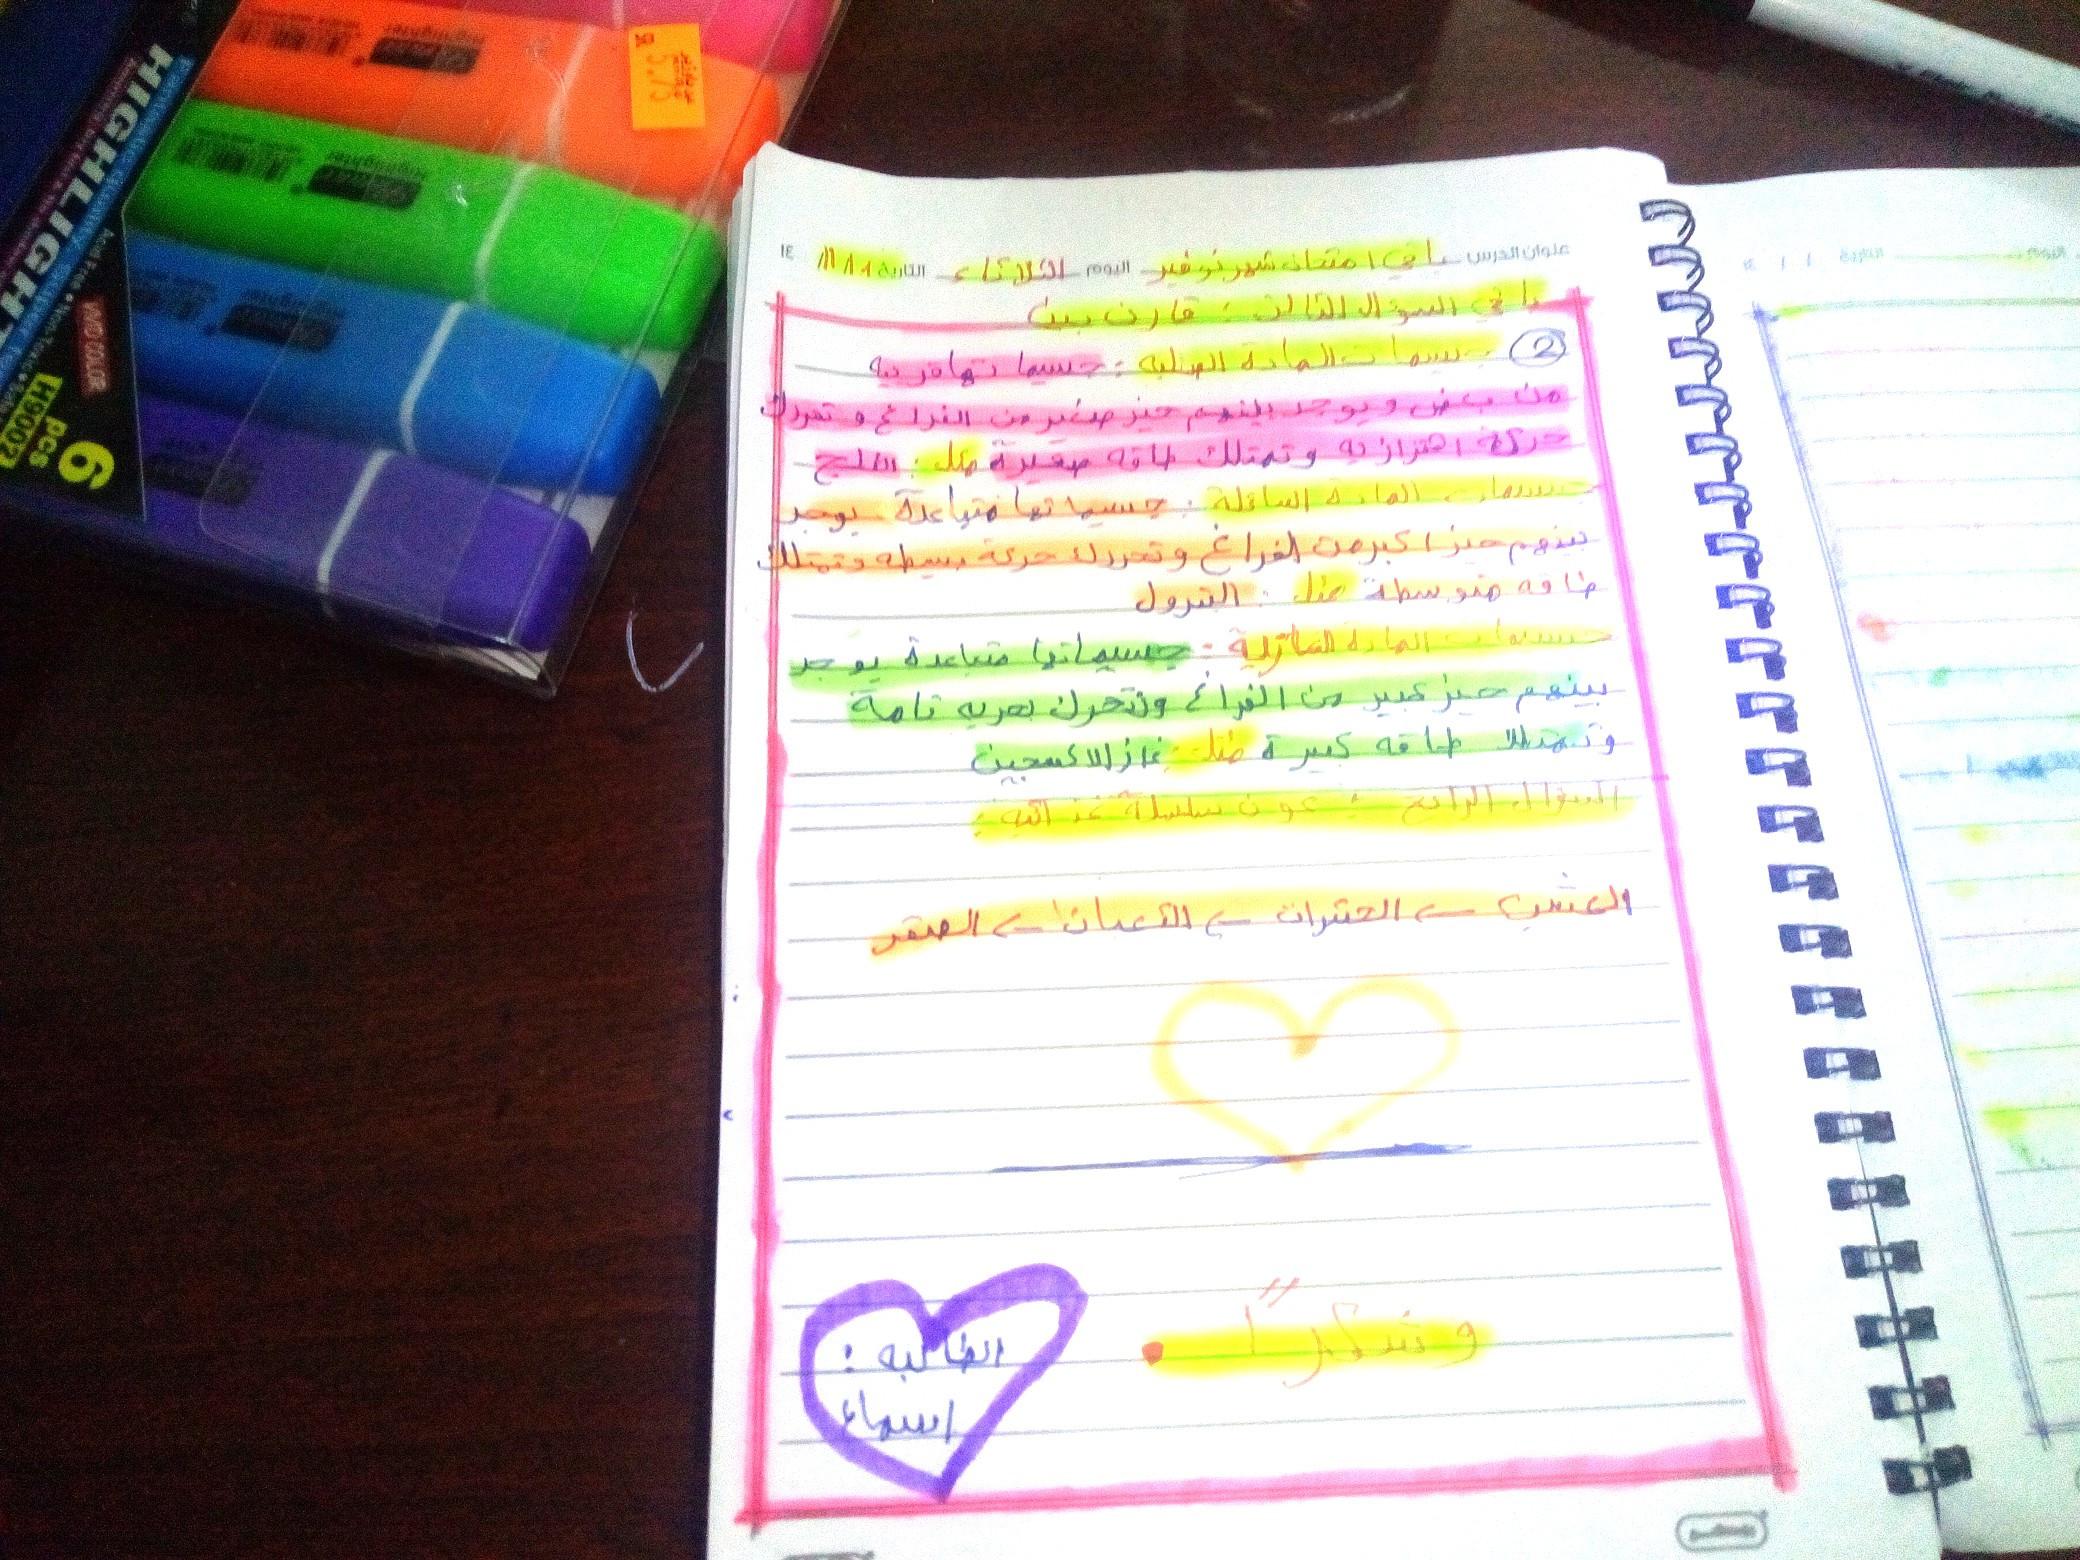 HIGHLIGHT
6
pcs
H9002
VIVID COLOR
5.75
عنوان الدرس باقي امتحان شهر نوفمبر اليوم الثلاثاء التاريخ ١٤
باقي السؤال الثالث : قارن بين
2 جسيمات المادة الصلبه : جسيماتها قريبه
من بعض ويوجد بينهم حيز صغير من الفراغ و تحرك
حركة اهتزازيه وتمتلك طاقه صغيرة مثل : الثلج
جسيمات المادة السائلة : جسيماتها متباعدة يوجد
بينهم حيز اكبر من الفراغ وتحرك حركة بسيطه وتمتلك
طاقه متوسطة مثل : البترول
جسيمات المادة الغازية : جسيماتها متباعدة يوجد
بينهم حيز كبير من الفراغ وتتحرك بحريه تامة
وتمتلك طاقه كبيرة مثل : غاز الاكسجين
السؤال الرابع : كون سلسلة غذائيه :
العشب ← الحشرات ← الثعبان ← الصقر
وشكراً .
الطالبه :
اسماء